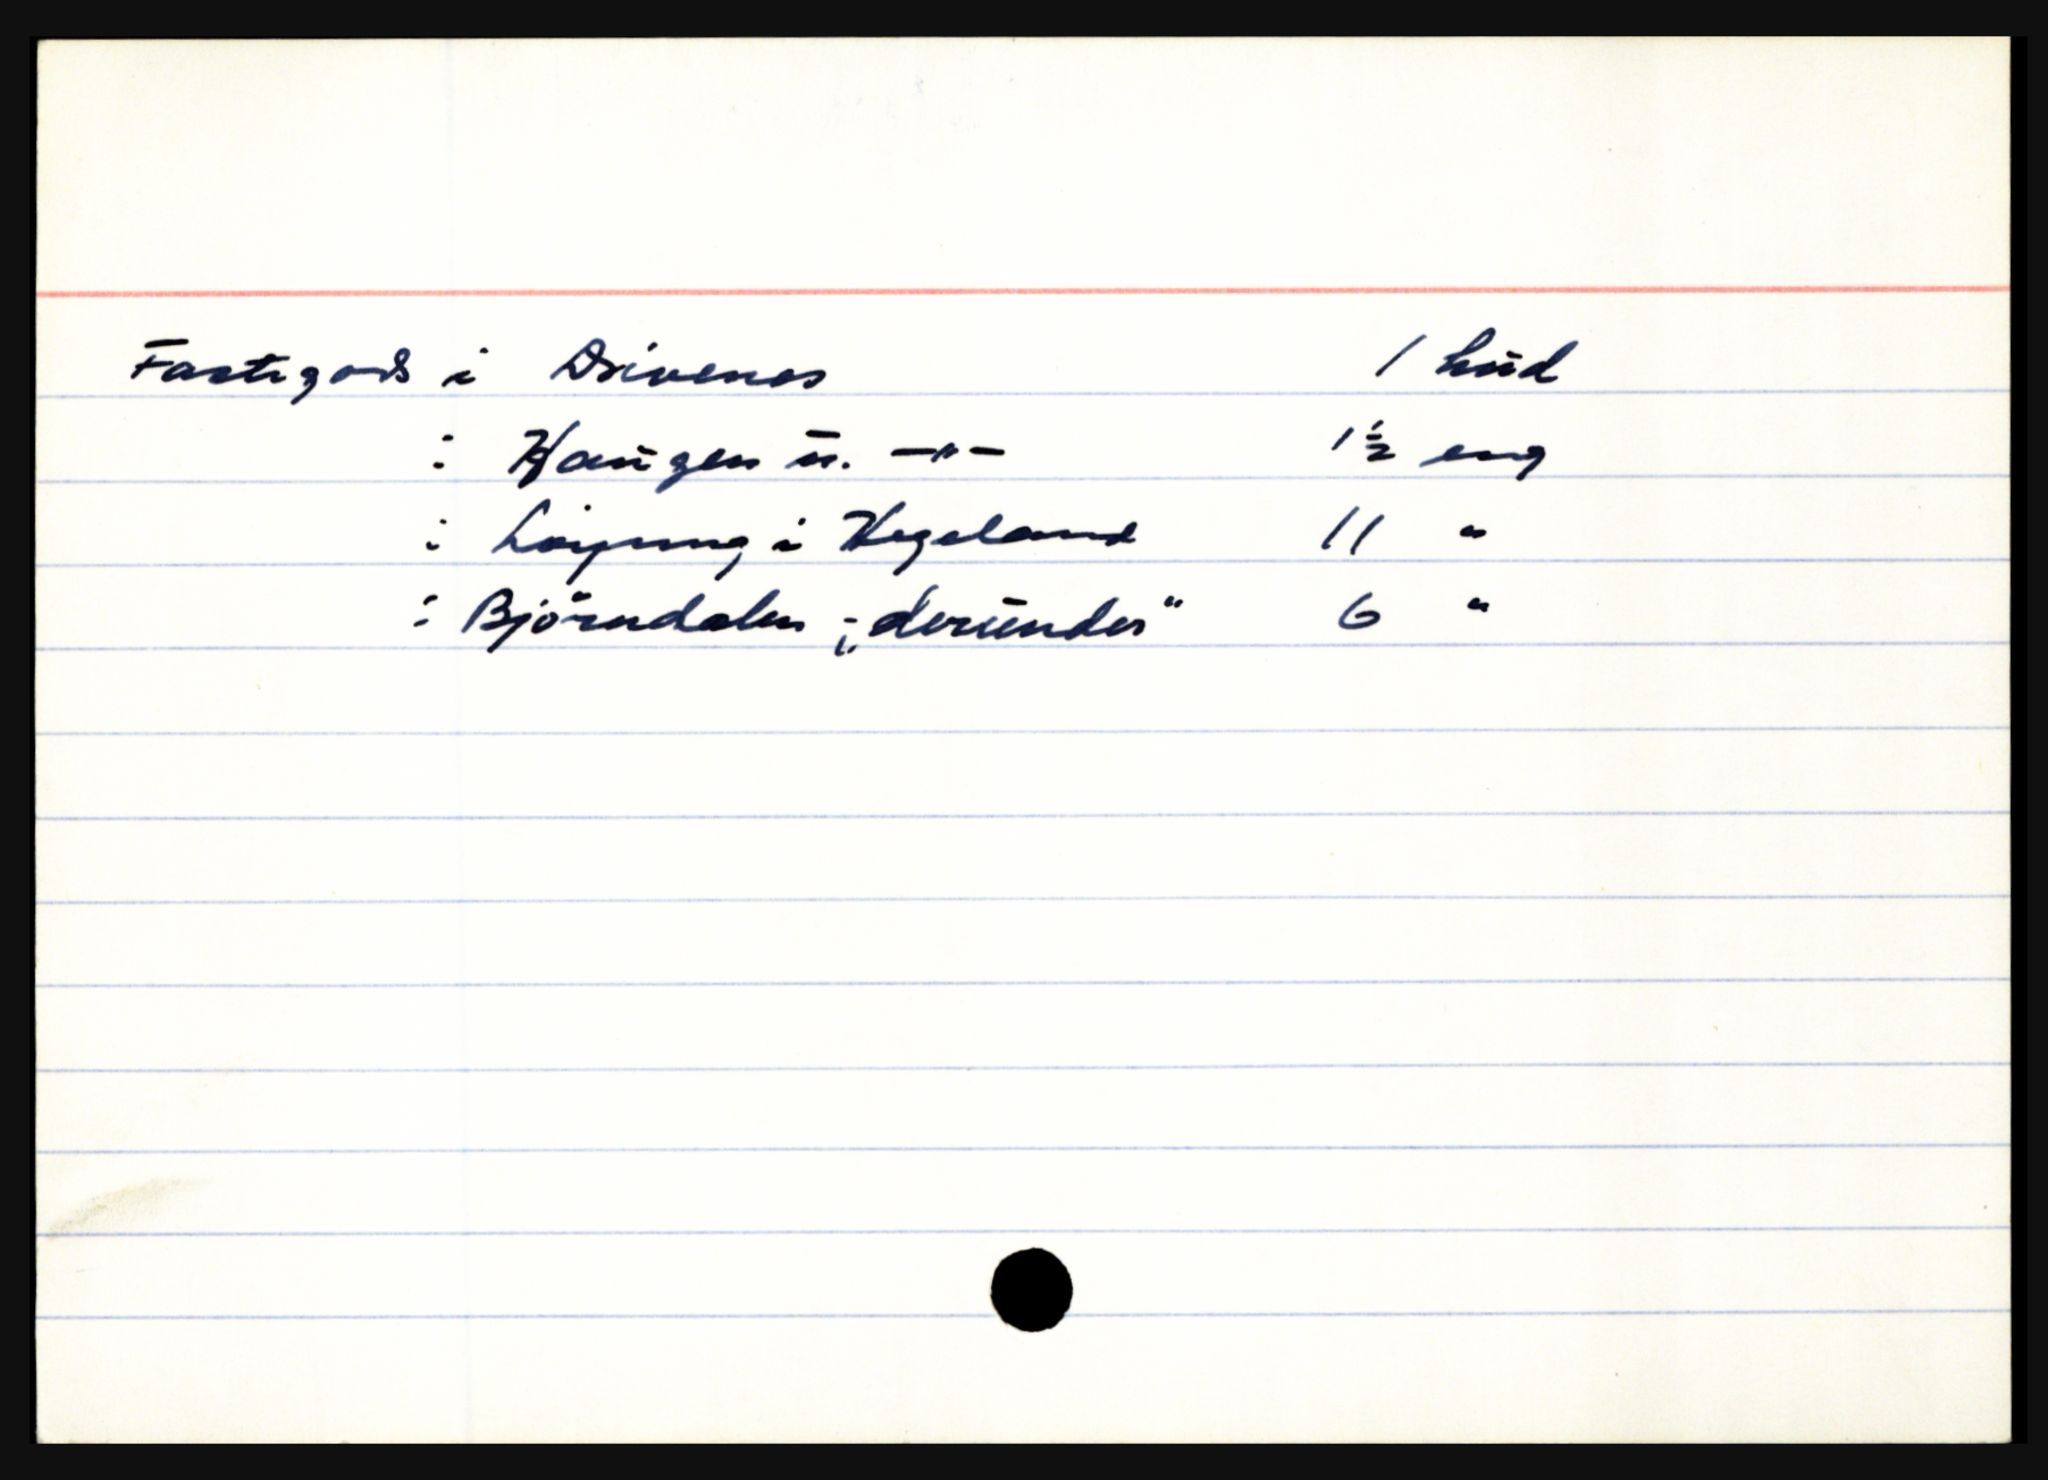 Fastigods i Drivenes 1 hud
: Haugen u. —"— 1½ eng
: Löyning i Hegeland 11 "
: Björndalen i „derunder" 6 "